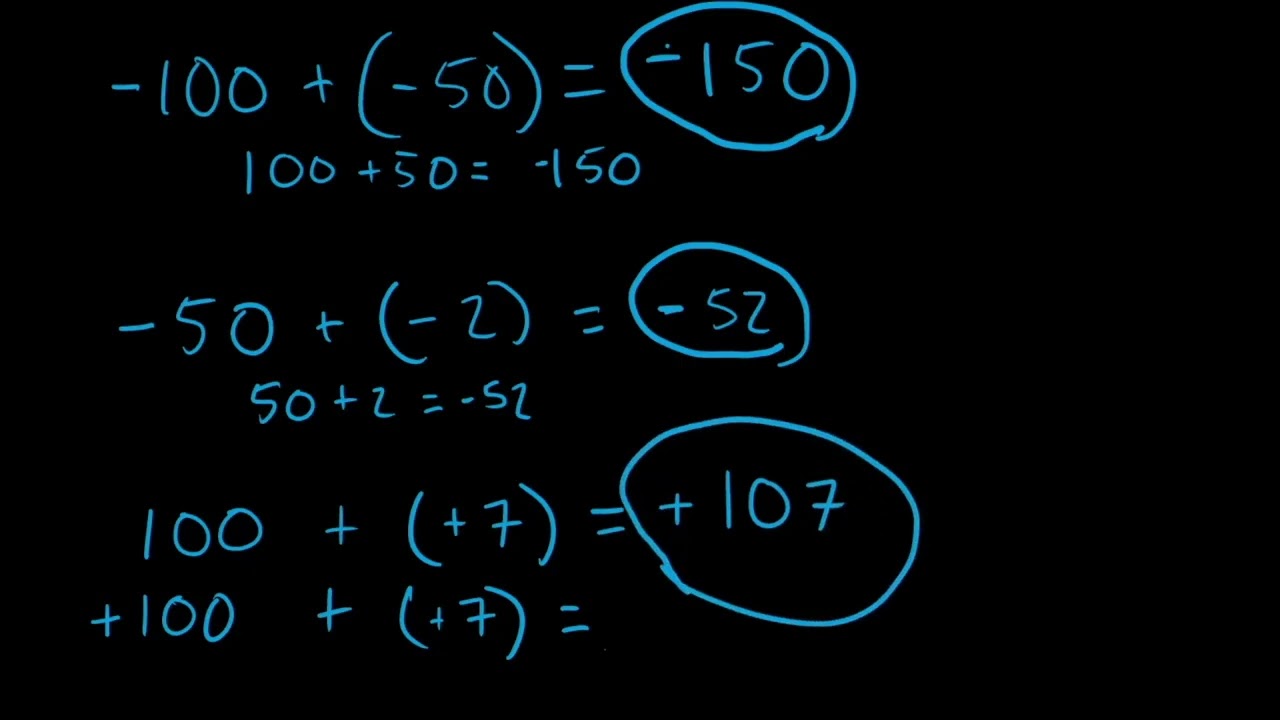 -100 + (-50) = -150
100 + 50 = -150
-50 + (-2) = -52
50 + 2 = -52
100 + (+7) = +107
+100 + (+7) =